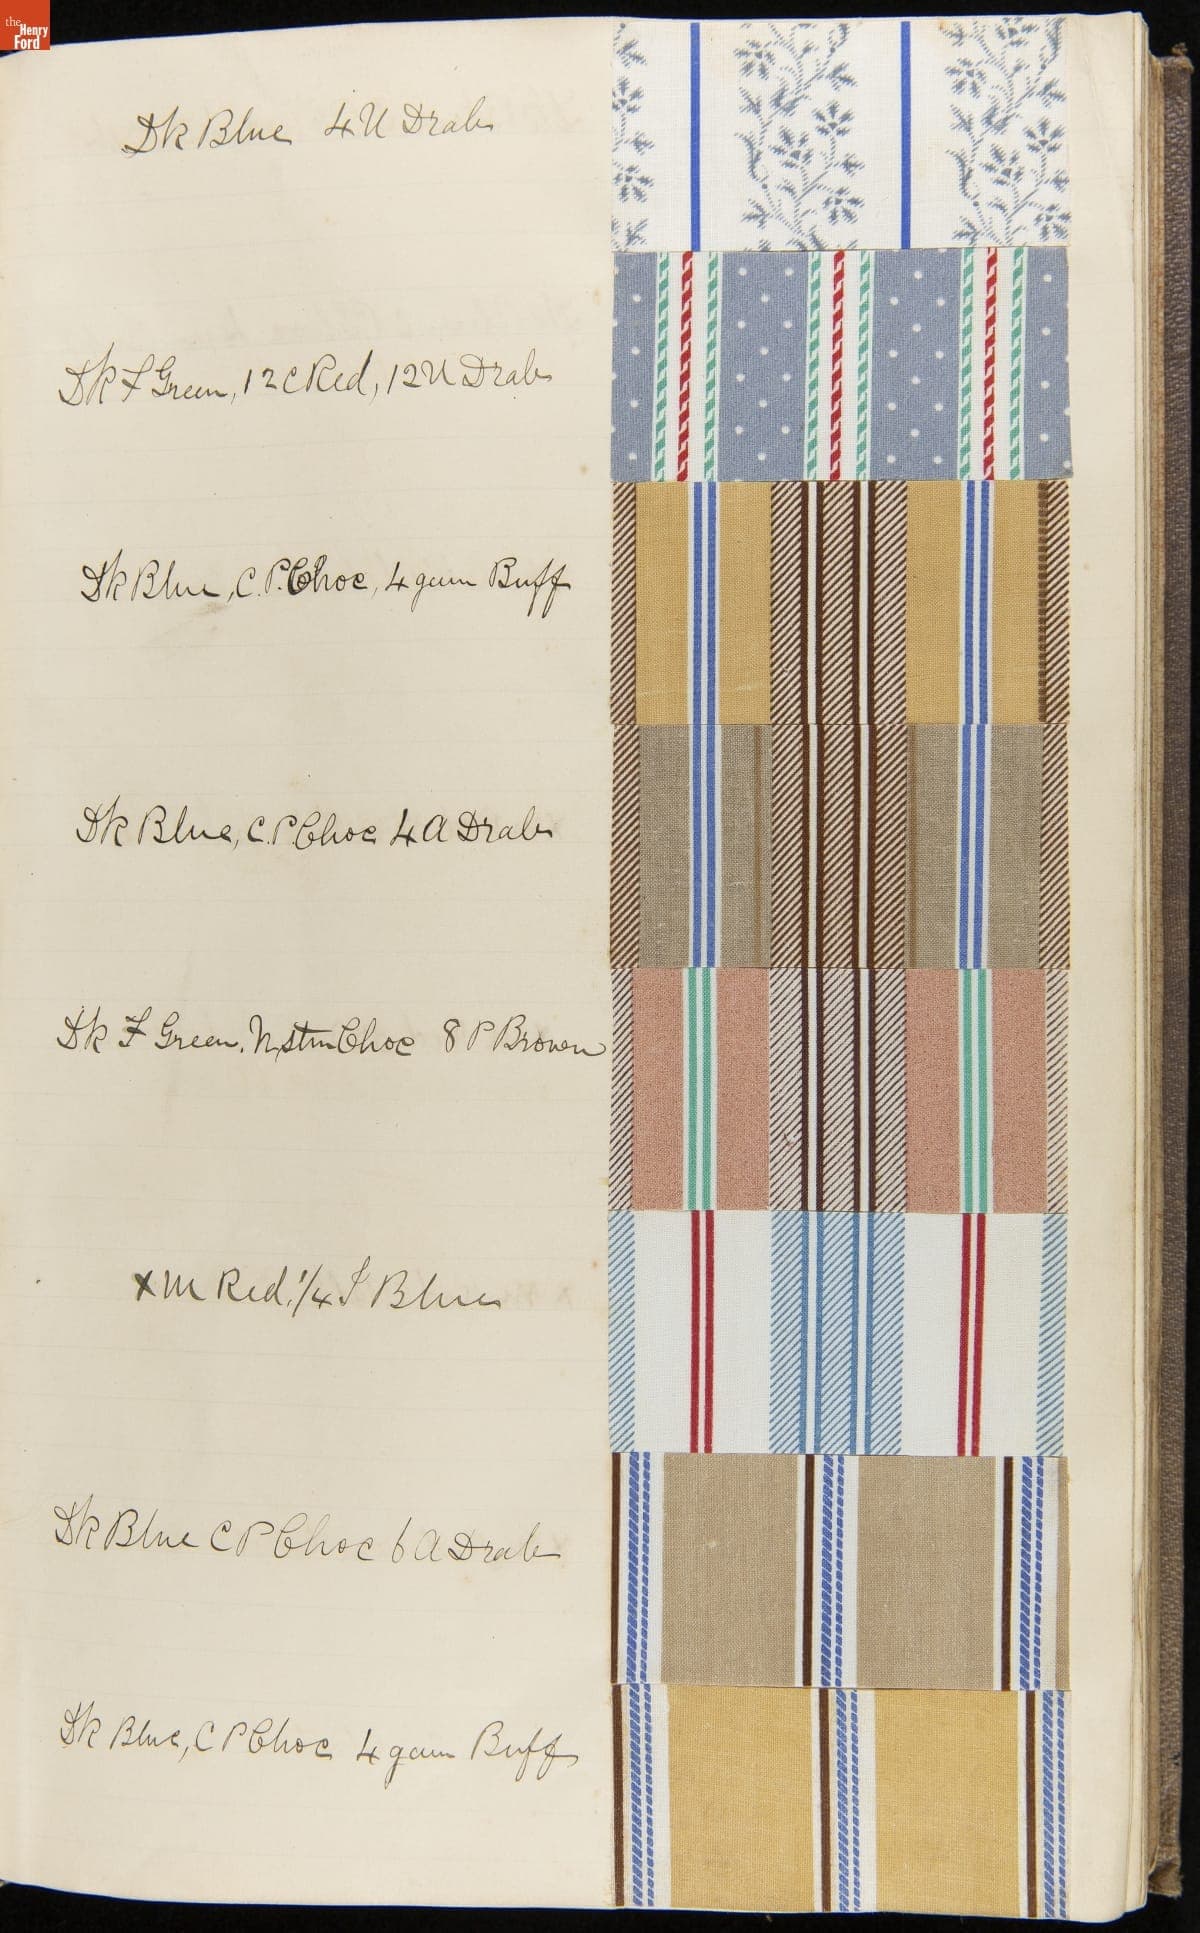 the
Henry
Ford
Dk Blue 4 U Drab
Dk F Green, 12 C Red, 12 U Drab
Dk Blue, C. P. Choc, 4 gum Buff
Dk Blue, C. P. Choc 4 A Drab
Dk F Green, N, stm Choc 8 P Brown
x M Red, 1/4 S Blue
Dk Blue C P Choc 6 A Drab
Dk Blue, C P Choc 4 gum Buff